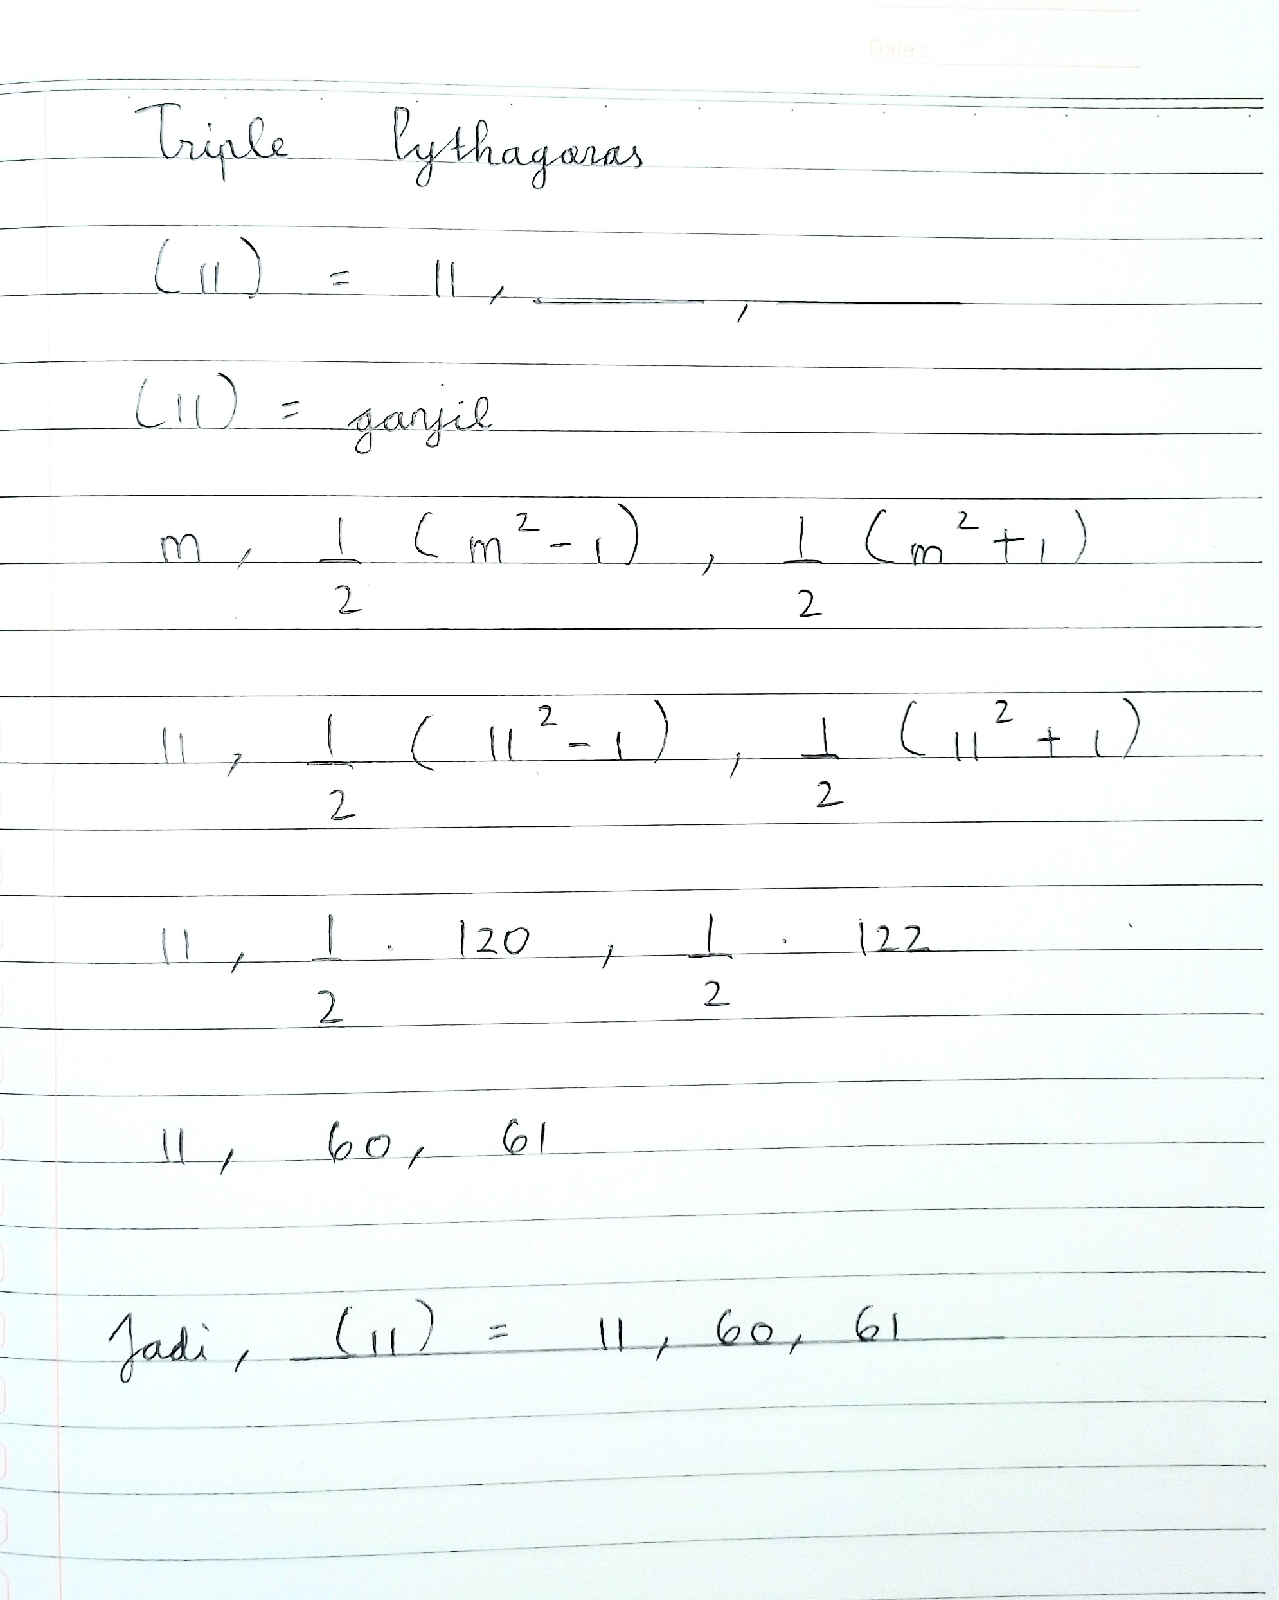 Date :
Triple Pythagoras
(11) = 11, ____, ____
(11) = ganjil
m, 1/2 (m²-1), 1/2 (m²+1)
11, 1/2 (11²-1), 1/2 (11²+1)
11, 1/2 . 120, 1/2 . 122
11, 60, 61
Jadi, (11) = 11, 60, 61